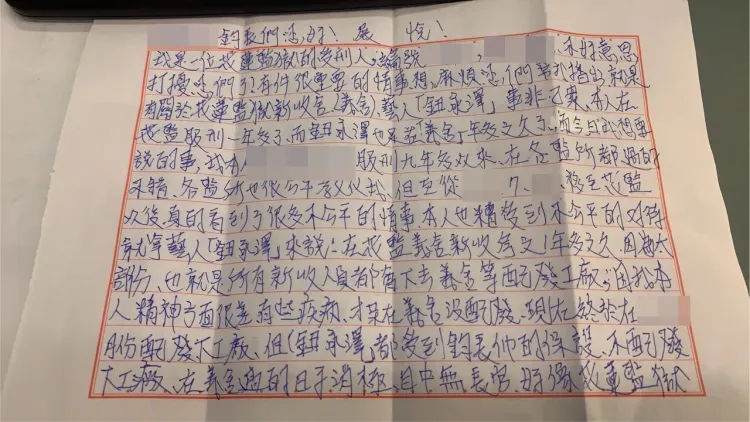 們您好！展收！
我是一位花蓮監獄的受刑人，編號，不好意思
打擾您們了！有件很重要的情事想麻煩您們幫忙播出，就是
有關於花蓮監獄新收舍（義舍）藝人「鈕承澤」事非不東，本人在
花監服刑一年多了，而鈕承澤也來在義舍1年多之久了，而今日我想要
說的事，我本人服刑九年多以來，在各監所都過的
不錯，各監所也很公平教化我，但至從7、移至花監
以後真的看到了很多不公平的情事，本人也遭受到不公平的對待，
就拿藝人「鈕承澤」來說！在花監義舍新收房之1年多之久，
部份，也就是所有新收人員都有下去義舍等配發工廠，由於本
人精神方面很差有些疾病，才來在義舍沒配發，現在終於在
月份配發下工廠，但「鈕承澤」都受到的保護，不配發
下工廠，在義舍過的日子消極，目中無長官，好像花蓮監獄